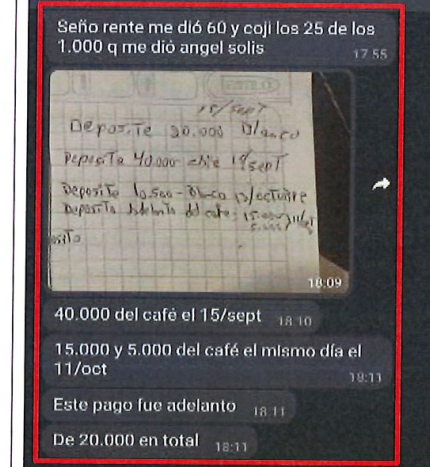 Seño rente me dió 60 y coji los 25 de los
1.000 q me dió angel solis
17:55
15/sept
Deposite 20.000 Blanco
Deposite 40.000 15/sept
Deposite 10.500 - Blanco 13/octubre
Deposito adelanto del cafe: 15.000
5.000 11/oct
18:09
40.000 del café el 15/sept 18:10
15.000 y 5.000 del café el mismo día el
11/oct
18:11
Este pago fue adelanto 18:11
De 20.000 en total 18:11